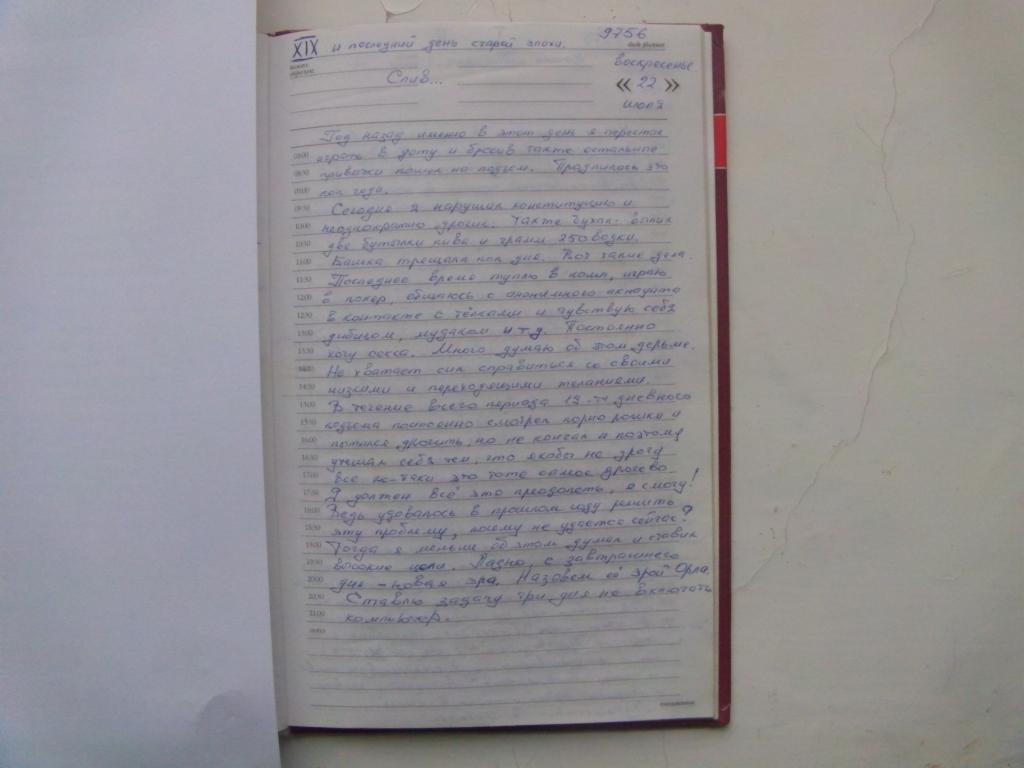 XIX и последний день старой эпохи. 9756
воскресенье
Слив...
« 22 »
июля
Год назад именно в этот день я перестал
08:00 играть в доту и бросив также остальные
08:30 привычки пошел на подъем. Продлилось это
09:00 пол года.
09:30 Сегодня я нарушил конституцию и
10:00 неоднократно дрочил. Также бухал: выпил
10:30 две бутылки пива и грамм 250 водки.
11:00 Башка трещала пол дня. Вот такие дела.
11:30 Последнее время туплю в комп, играю
12:00 в покер, общаюсь с анонимного аккаунта
12:30 в контакте с тёлками и чувствую себя
13:00 дибилом, мудаком и т д. Постоянно
13:30 хочу секса. Много думаю об этом дерьме.
14:00 Не хватает сил справиться со своими
14:30 низкими и переходящими желаниями.
15:00 В течение всего периода 19-ти дневного
15:30 подъема постоянно смотрел порно ролики и
16:00 пытался дрочить, но не кончал и поэтому
16:30 утешал себя тем, что якобы не дрочу
17:00 все же-таки это тоже самое дрочево.
17:30 Я должен всё это преодолеть, я смогу!
18:00 Ведь удавалось в прошлом году решить
18:30 эту проблему, почему не удается сейчас?
19:00 Тогда я меньше об этом думал и ставил
19:30 высокие цели. Ладно, с завтрашнего
20:00 дня – новая эра. Назовем её эрой Орла.
20:30 Ставлю задачу три дня не включать
21:00 компьютер.